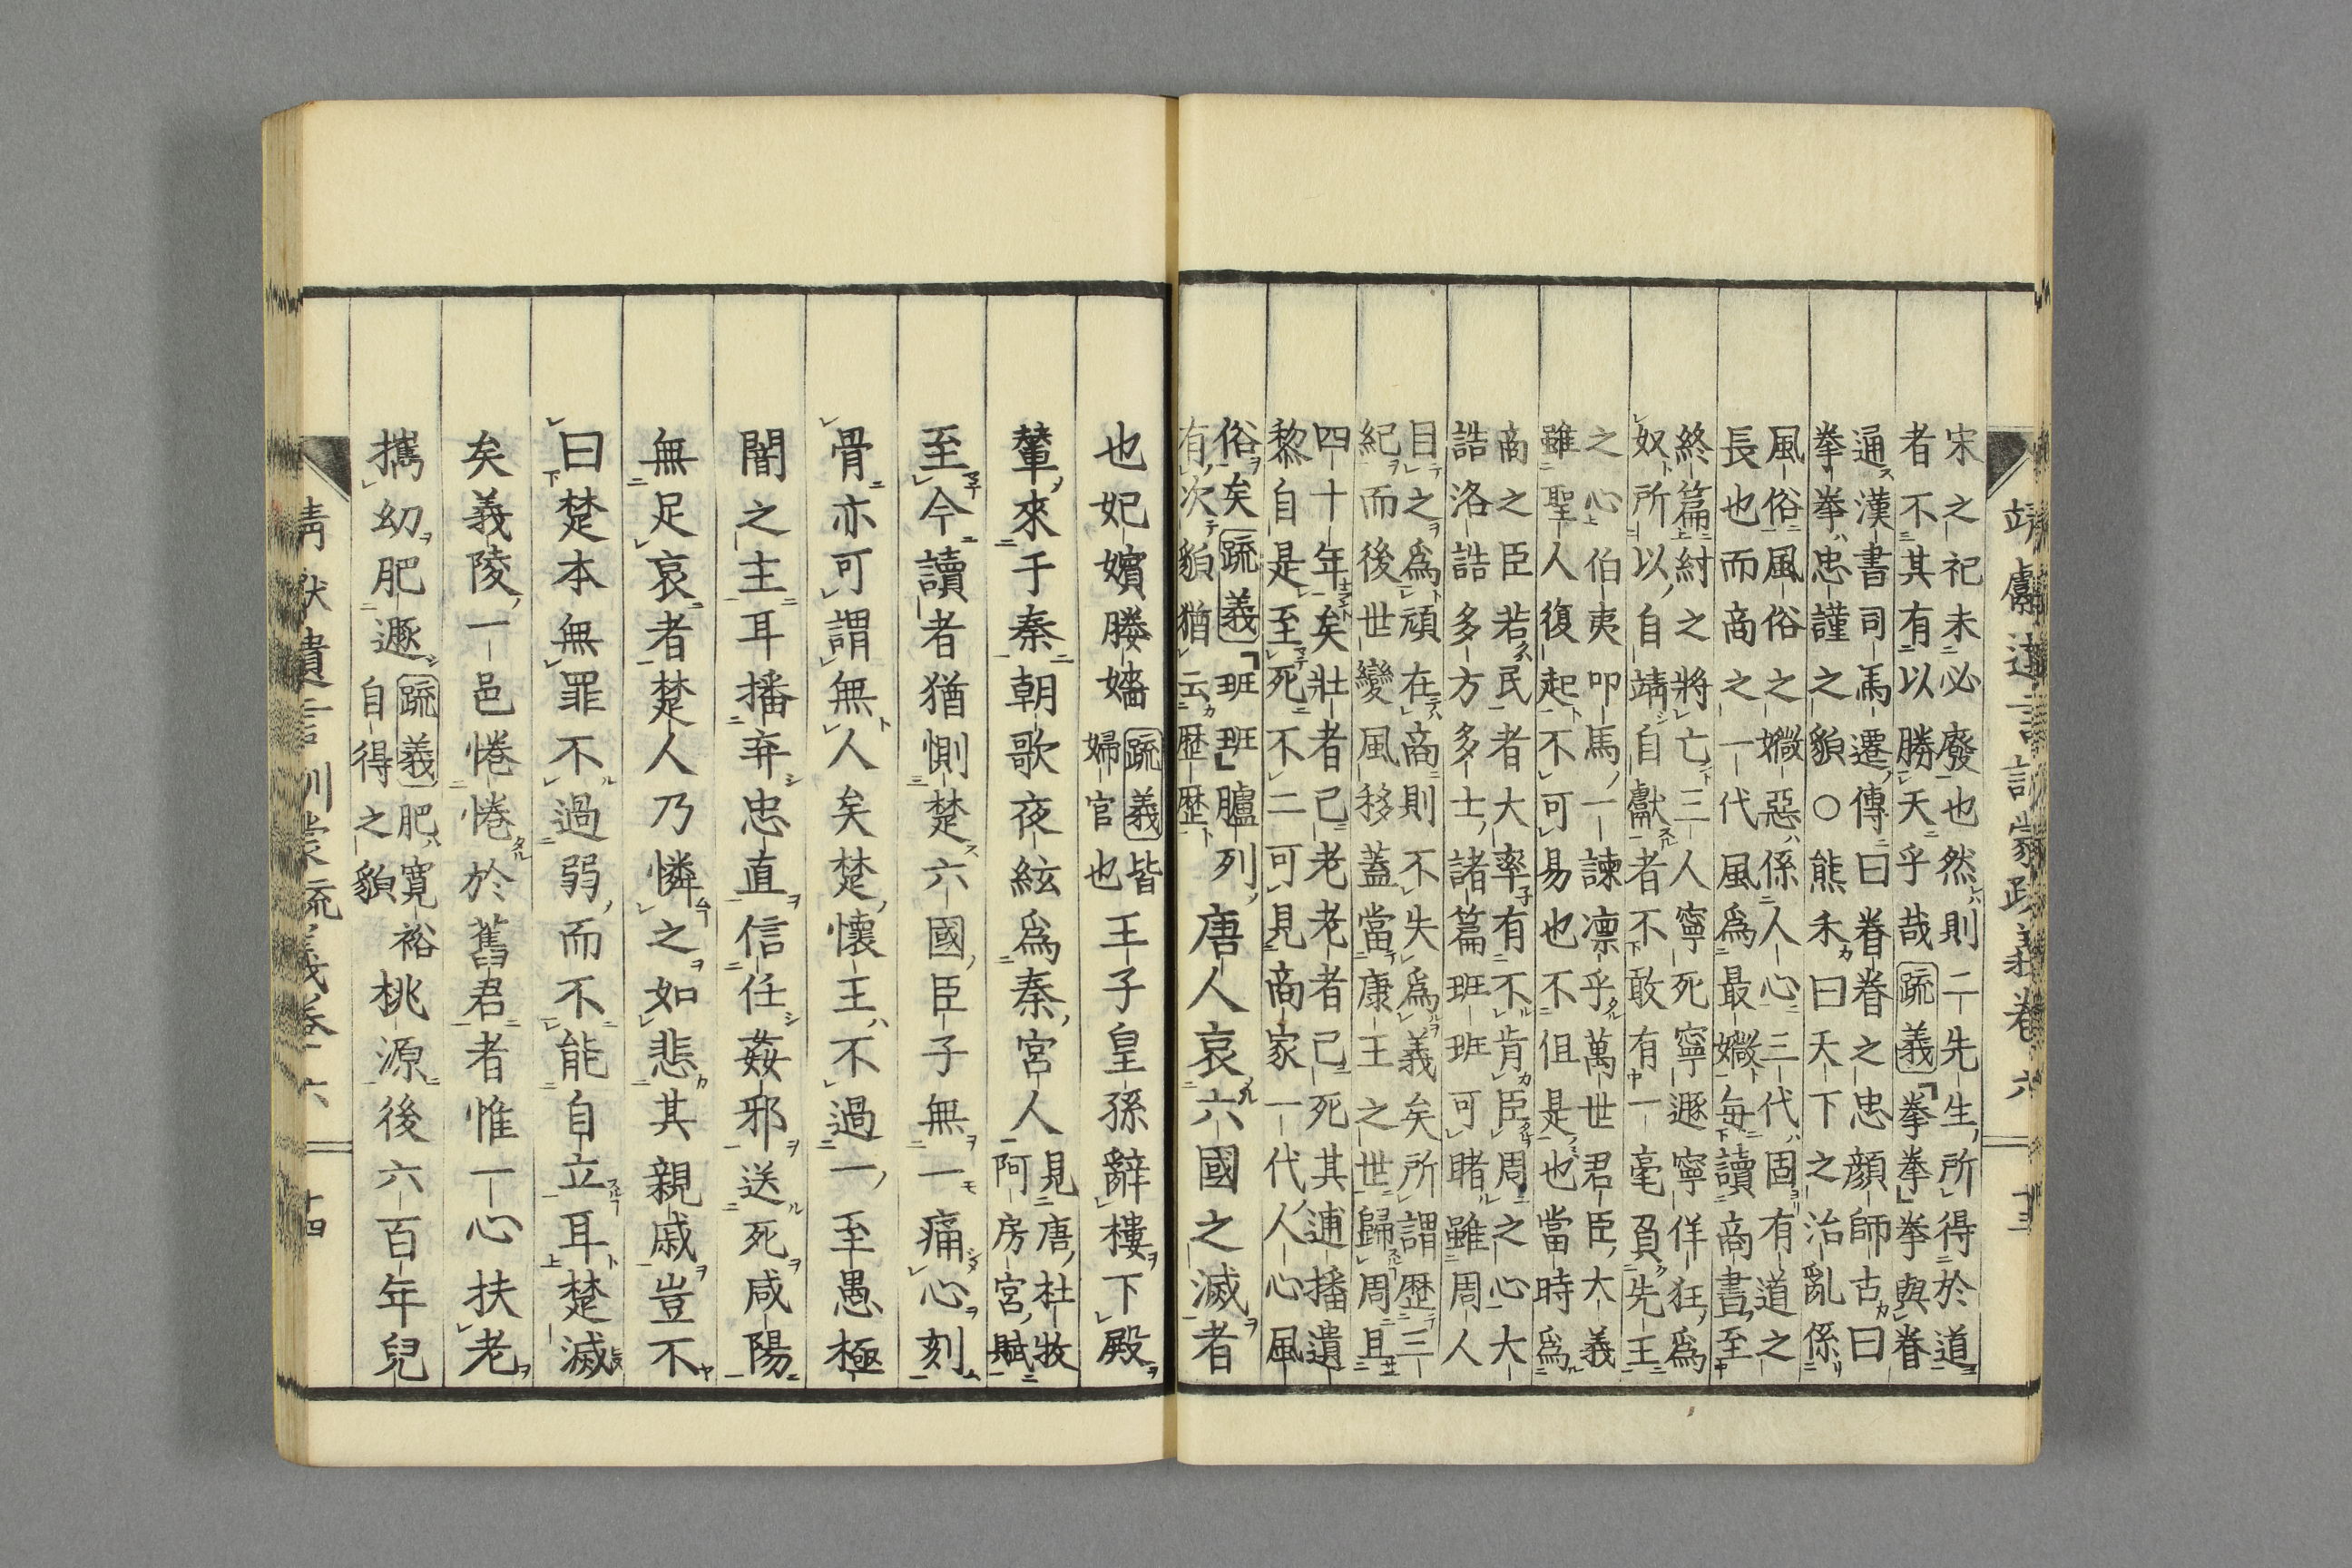 靖獻遺言訓蒙疏義卷六 十三
宋之祀未必廢也然則二先生所得於道
者不其有以勝天乎哉疏義拳拳拳與眷
通漢書司馬遷傳曰眷眷之忠顔師古曰
拳拳忠謹之貌○熊禾曰天下之治亂係
風俗風俗之媺惡係人心三代固有道之
長也而商之一代風爲最媺毎讀商書至
終篇紂之將亡三人寧死寧遯寧佯狂爲
奴所以自靖自獻者不敢有一毫負先王
之心伯夷叩馬一諫凛乎萬世君臣大義
雖聖人復起不可易也不但是也當時爲
商之臣若民者大率有不肯臣周之心大
誥洛誥多方多士諸篇班班可睹雖周人
目之爲頑在商則不失爲義矣所謂歷三
紀而後世變風移蓋當康王之世歸周且
四十年矣壯者已老老者已死其逋播遺
黎自是至死不二可見商家一代人心風
俗矣疏義班班臚列
有次貌猶云歷歷
唐人哀六國之滅者
也妃嬪媵嬙
疏義皆
婦官也
王子皇孫辭樓下殿
輦來于秦朝歌夜絃爲秦宮人
見唐杜牧
阿房宮賦
至今讀者猶惻楚六國臣子無一痛心刻
骨亦可謂無人矣楚懷王不過一至愚極
闇之主耳播弃忠直信任姦邪送死咸陽
無足哀者楚人乃憐之如悲其親戚豈不
曰楚本無罪不過弱而不能自立耳楚滅
矣義陵一邑惓惓於舊君者惟一心扶老
攜幼肥遯
疏義肥寛裕
自得之貌
桃源後六百年兒
靖獻遺言訓蒙疏義卷六 十四